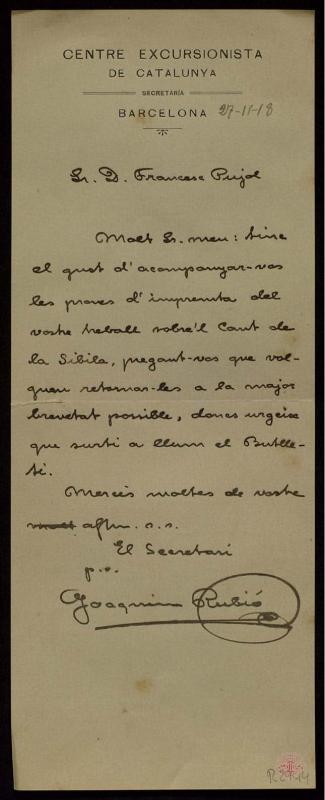 CENTRE EXCURSIONISTA
DE CATALUNYA
SECRETARÍA
BARCELONA 27-11-18
Sr. D. Francesc Pujol
Molt Sr. meu: tinc
el gust d'acompanyar-vos
les proves d'imprenta del
vostre treball sobre'l Cant de
la Sibila, pregant-vos que vol-
gueu retornar-les a la major
brevetat possible, doncs urgeix
que surti a llum el Butlle-
tí.
Mercès moltes de vostre
molt affm. s.s.
El Secretari
p.o.
Joaquim Rubió